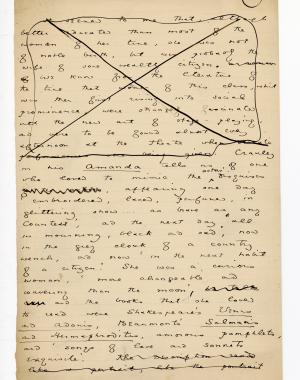 seemed to me that, although
better educated than most of the
women of her time, she was not
of noble birth, but was probably the
wife of some wealthy citizen.
We know from the Elizabethan
the time that women of this class, whilst
were then just rising into social
prominence were strangely fascinated
with the new art of stage playing
and were to be found almost every
afternoon at the theatre when
were being given. Cranley
in his Amanda tells us of one
who loved to mimic the actor's disguises
appearing one day
embroidered, laced, perfumed, in
glittering show ... as brave as any
Countess, and the next day, all
in mourning, black and sad, now
in the grey cloak of a country
wench, and now in the neat habit
of a citizen. She was a curious
woman, more changeable and
wavering than the moon,
and the books that she loved
to read were Shakespeare's Venus
and Adonis, Beaumont's Salmacis
and Hermaphroditus, amorous pamphlets,
and songs of love and sonnets
exquisite. The description reads
like portrait, like the portrait